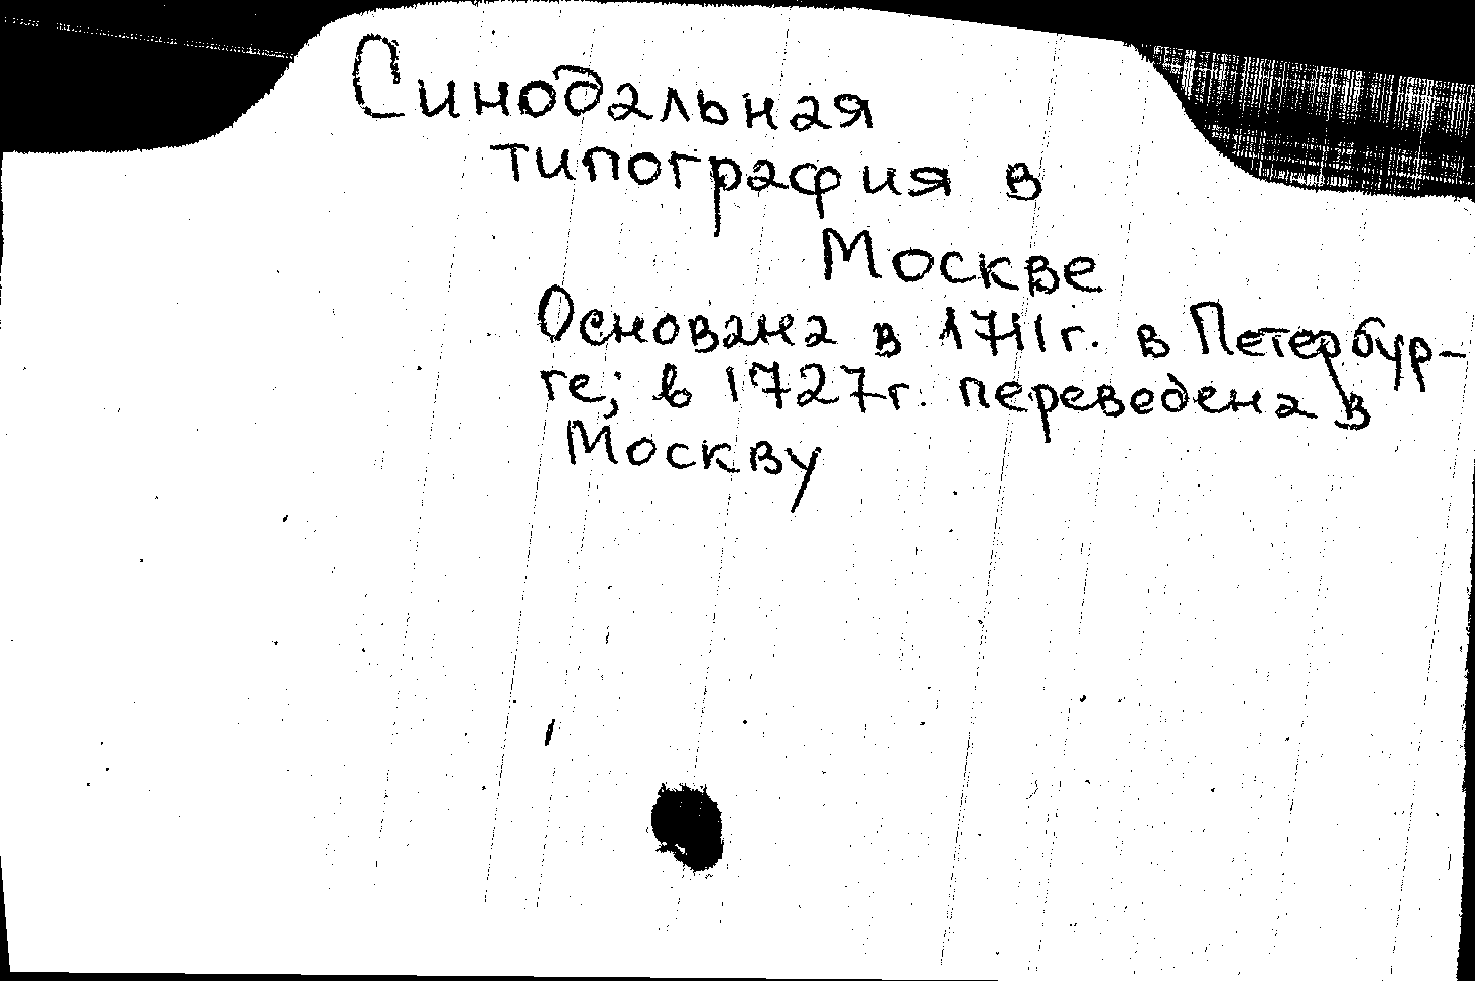 Синодальная
типография в
Москве
Основана в 1711г. в Петербур-
ге; в 1727г. переведена в
Москву